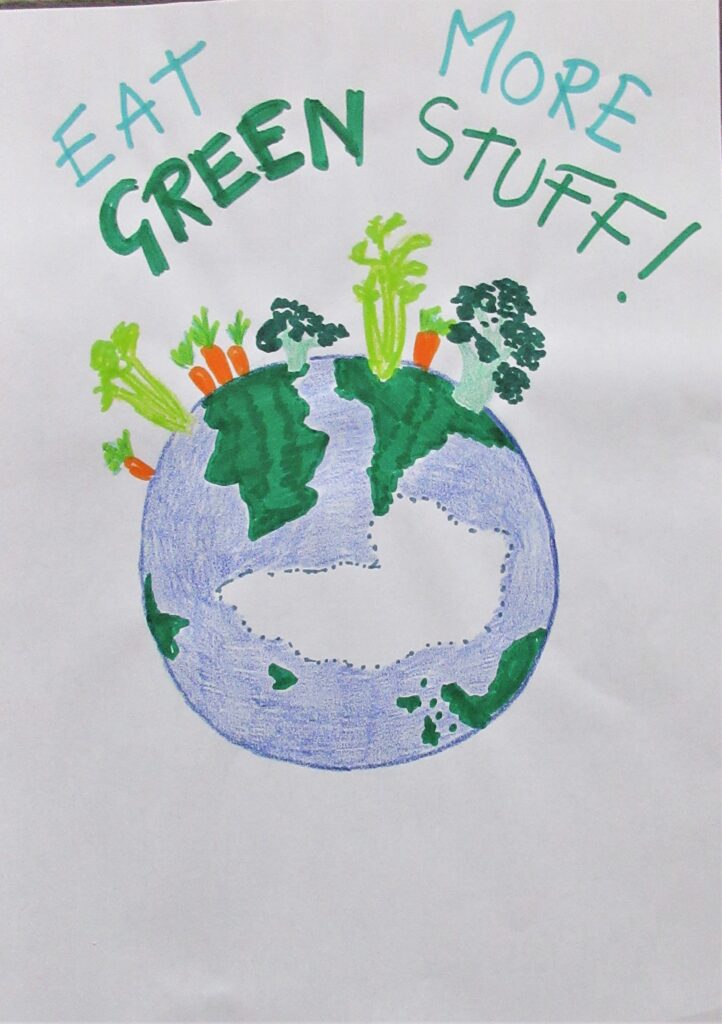 EAT MORE
GREEN STUFF!